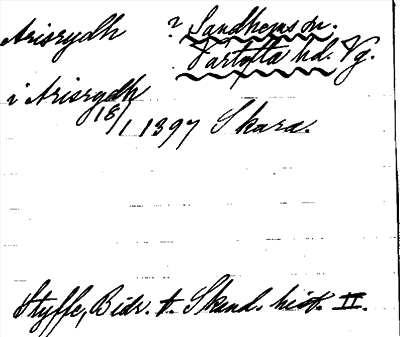 Arisrydh ? Sandhems sn.
Vartofta hd. Vg.
i Arisrydh
18/1 1397 Skara.
Styffe, Bidr. t. Skand. hist. II.